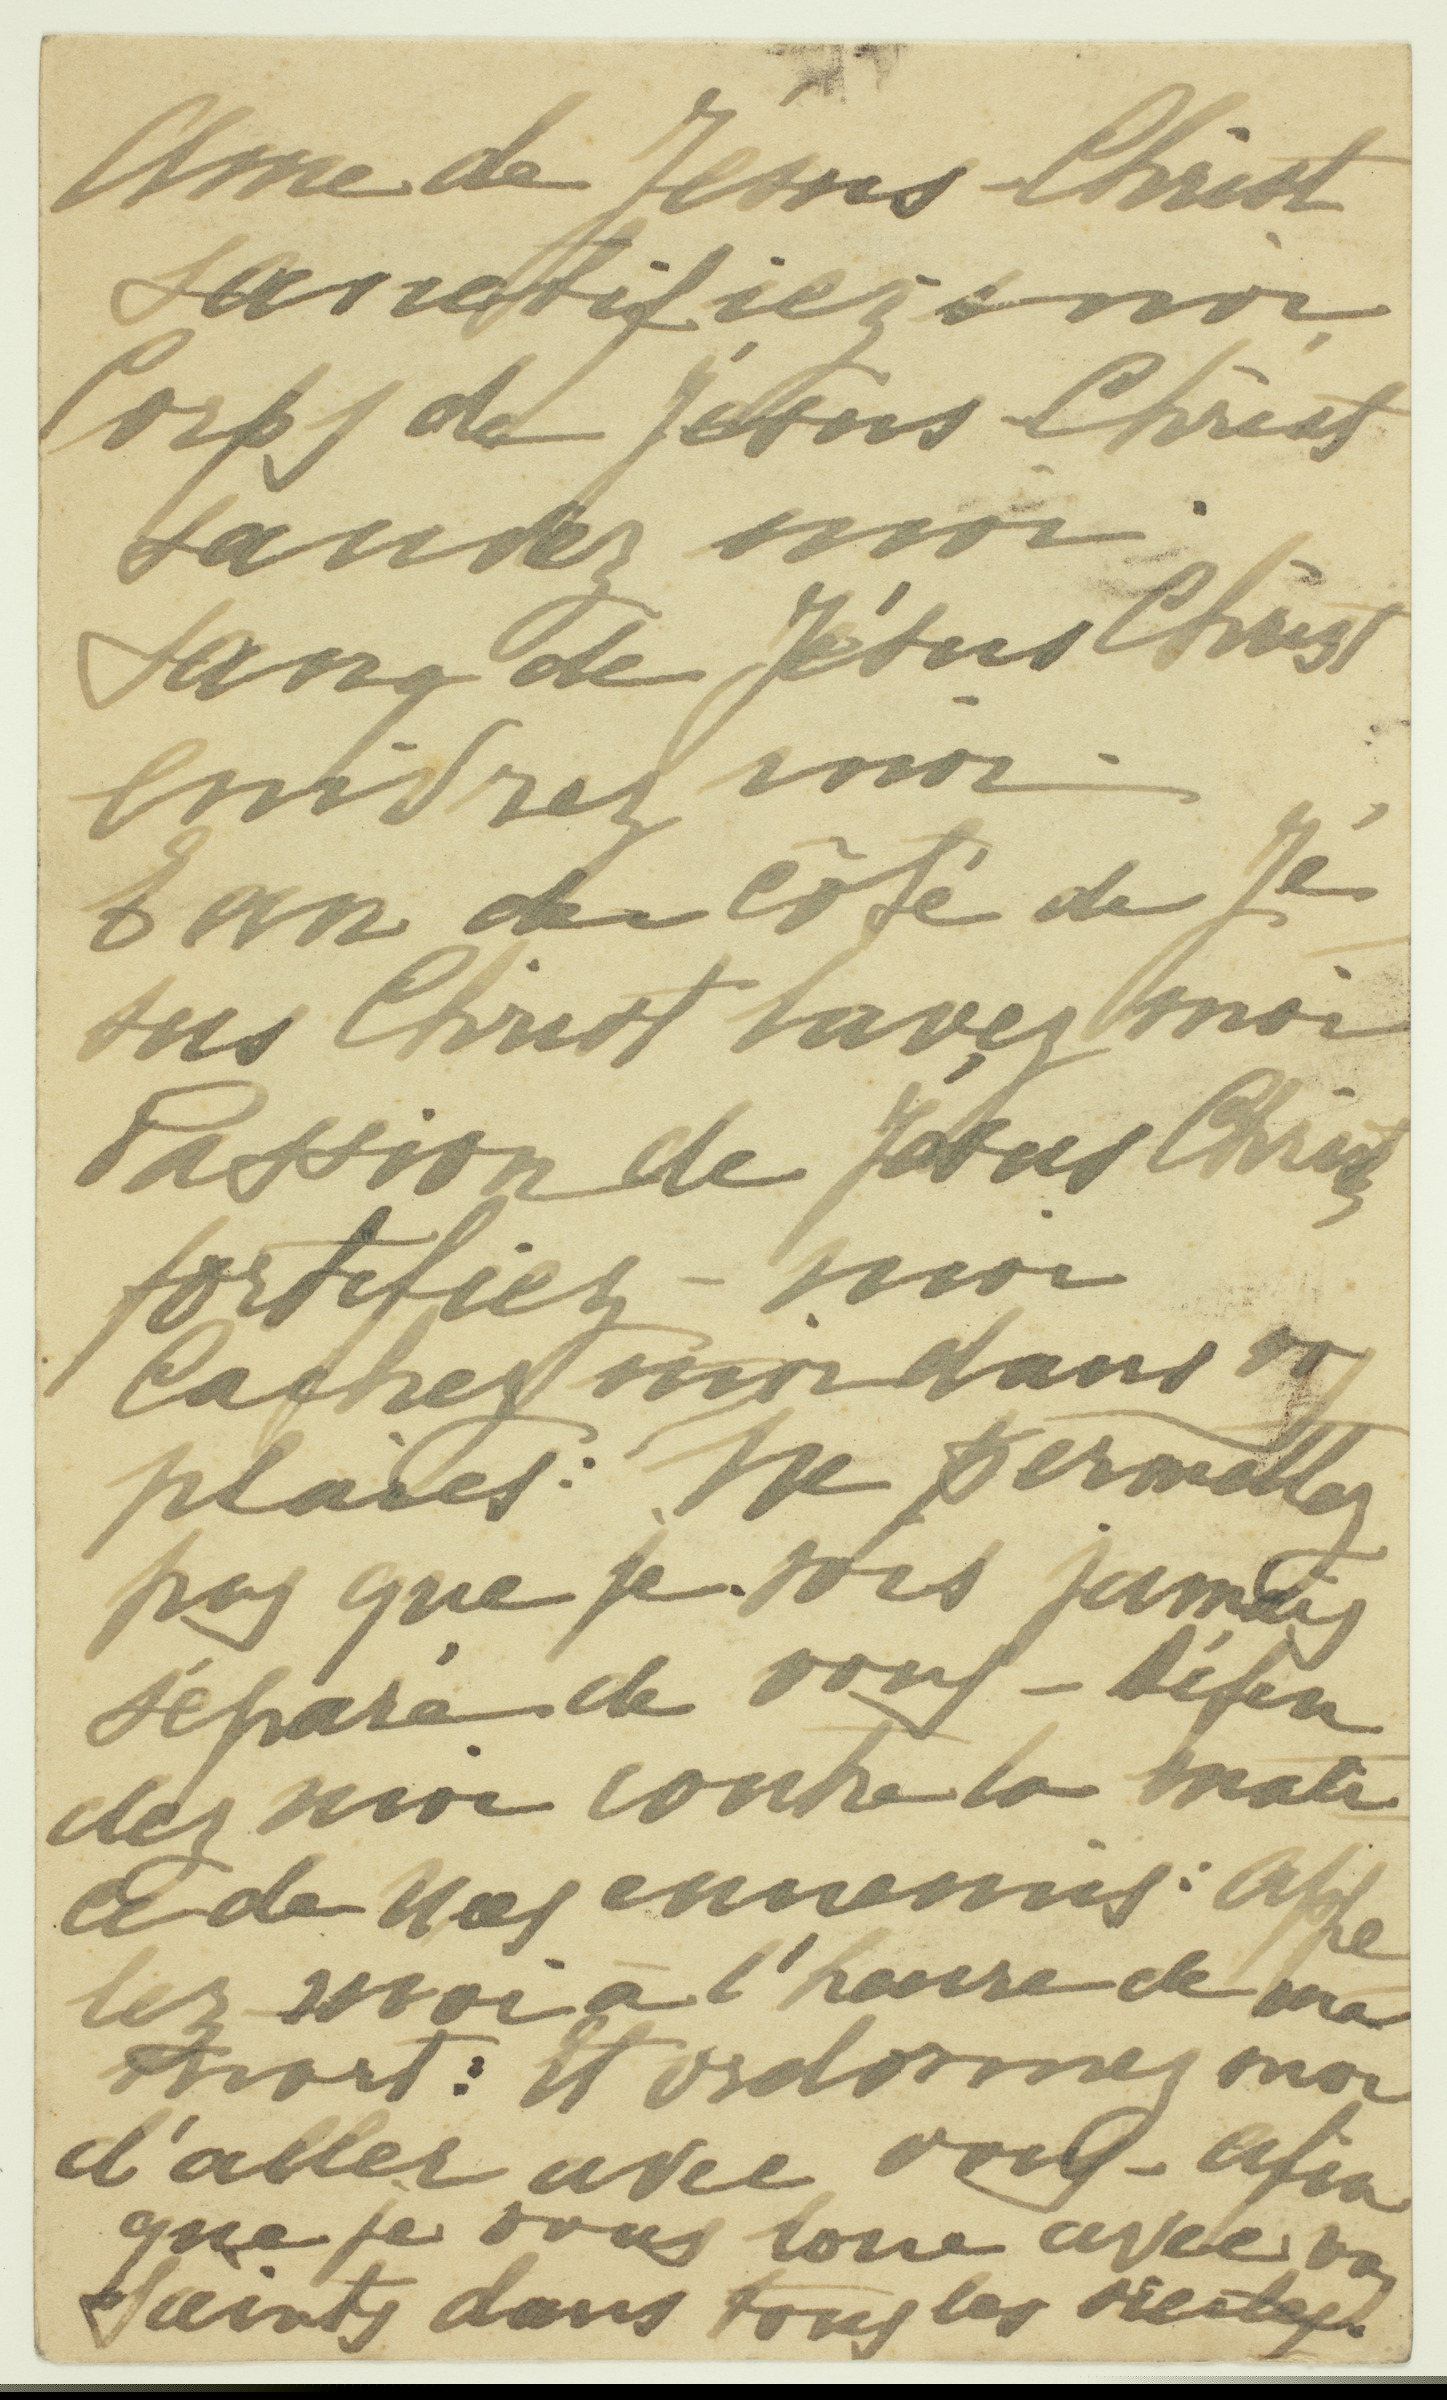 Ame de Jésus-Christ
sanctifiez-moi,
Corps de Jésus-Christ
sauvez moi.
Sang de Jésus Christ
enivrez moi.
Eau du côté de Jé
sus Christ lavez moi
Passion de Jésus Christ
fortifiez-moi
Cachez moi dans vos
plaies: Ne permettez
pas que je sois jamais
séparé de vous - Défen
dez moi contre la mali
ce de mes ennemis: appe
lez moi à l'heure de ma
mort: Et ordonnez moi
d'aller avec vous - afin
que je vous loue avec vos
Saints dans tous les siècles.